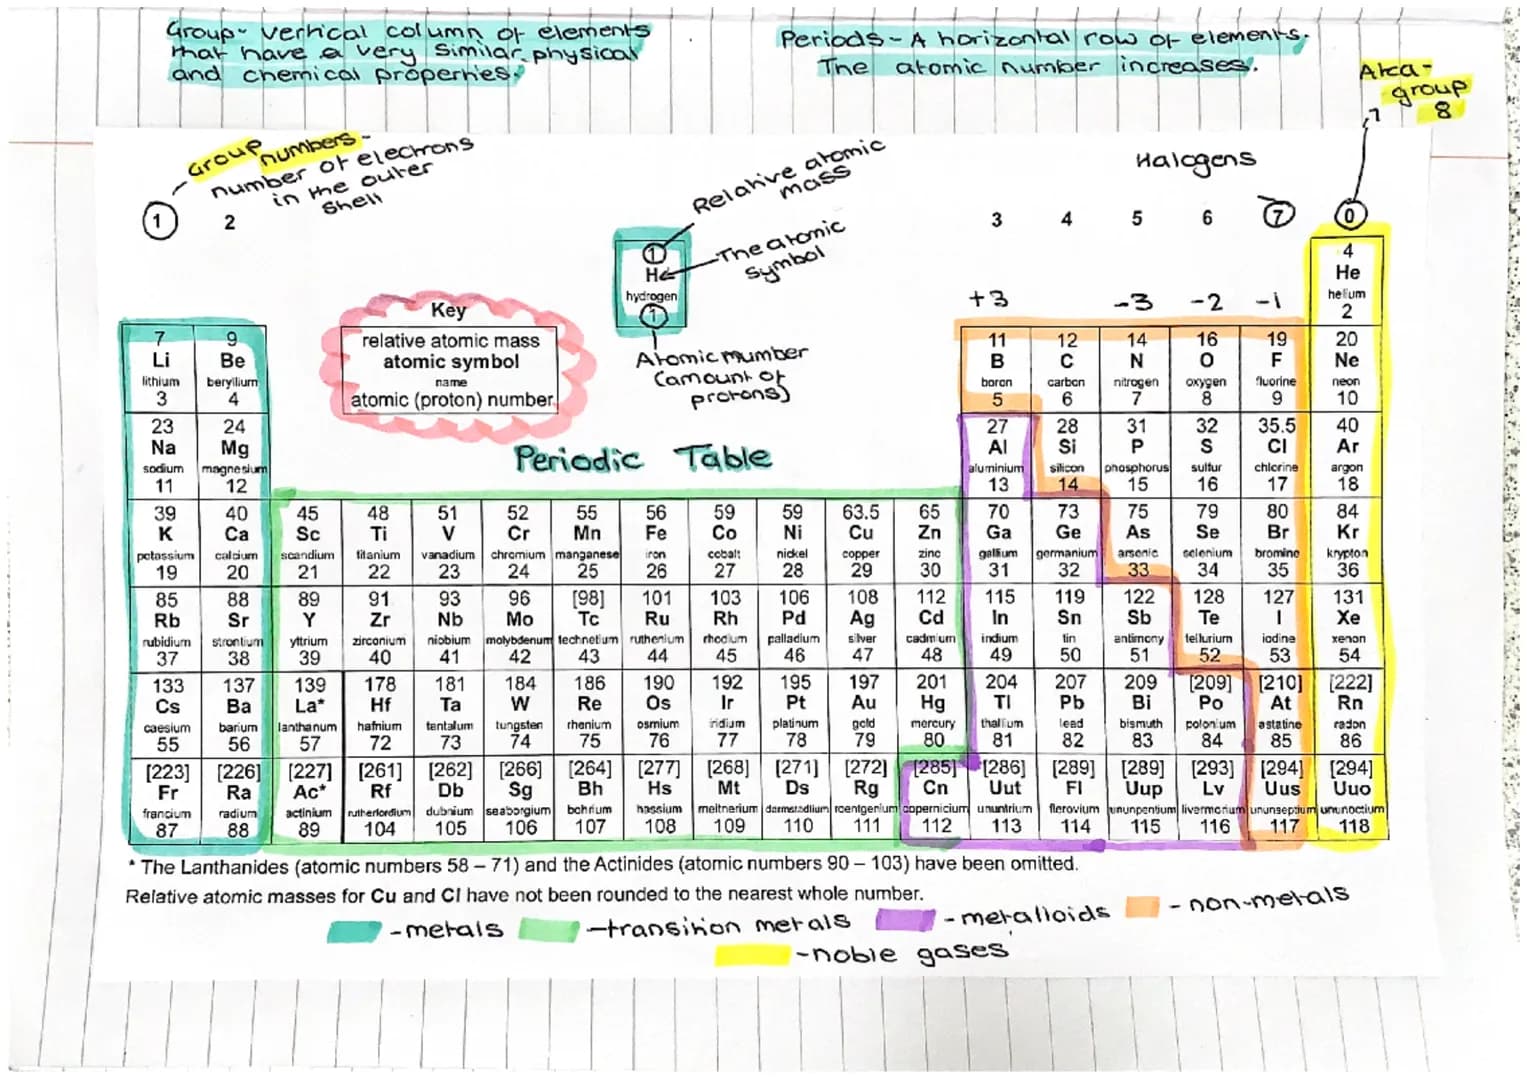 Group- vertical column of elements
that have a very similar physical
and chemical properties.
Periods - A horizontal row of elements.
The atomic number increases.
Aka-
group
8
Group numbers -
number of electrons
in the outer
shell
Relative atomic
mass
The atomic
symbol
Halogens
1 2 3 4 5 6 7 0
1
H
hydrogen
1
Atomic number
(amount of
protons)
+3 -3 -2 -1
Key
relative atomic mass
atomic symbol
name
atomic (proton) number
Periodic Table
4
He
helium
2
7 9 11 12 14 16 19 20
Li Be B C N O F Ne
lithium beryllium boron carbon nitrogen oxygen fluorine neon
3 4 5 6 7 8 9 10
23 24 27 28 31 32 35.5 40
Na Mg Al Si P S Cl Ar
sodium magnesium aluminium silicon phosphorus sulfur chlorine argon
11 12 13 14 15 16 17 18
39 40 45 48 51 52 55 56 59 59 63.5 65 70 73 75 79 80 84
K Ca Sc Ti V Cr Mn Fe Co Ni Cu Zn Ga Ge As Se Br Kr
potassium calcium scandium titanium vanadium chromium manganese iron cobalt nickel copper zinc gallium germanium arsenic selenium bromine krypton
19 20 21 22 23 24 25 26 27 28 29 30 31 32 33 34 35 36
85 88 89 91 93 96 [98] 101 103 106 108 112 115 119 122 128 127 131
Rb Sr Y Zr Nb Mo Tc Ru Rh Pd Ag Cd In Sn Sb Te I Xe
rubidium strontium yttrium zirconium niobium molybdenum technetium ruthenium rhodium palladium silver cadmium indium tin antimony tellurium iodine xenon
37 38 39 40 41 42 43 44 45 46 47 48 49 50 51 52 53 54
133 137 139 178 181 184 186 190 192 195 197 201 204 207 209 [209] [210] [222]
Cs Ba La* Hf Ta W Re Os Ir Pt Au Hg Tl Pb Bi Po At Rn
caesium barium lanthanum hafnium tantalum tungsten rhenium osmium iridium platinum gold mercury thallium lead bismuth polonium astatine radon
55 56 57 72 73 74 75 76 77 78 79 80 81 82 83 84 85 86
[223] [226] [227] [261] [262] [266] [264] [277] [268] [271] [272] [285] [286] [289] [289] [293] [294] [294]
Fr Ra Ac* Rf Db Sg Bh Hs Mt Ds Rg Cn Uut Fl Uup Lv Uus Uuo
francium radium actinium rutherfordium dubnium seaborgium bohrium hassium meitnerium darmstadtium roentgenium copernicium ununtrium flerovium ununpentium livermorium ununseptium ununoctium
87 88 89 104 105 106 107 108 109 110 111 112 113 114 115 116 117 118
* The Lanthanides (atomic numbers 58 – 71) and the Actinides (atomic numbers 90 – 103) have been omitted.
Relative atomic masses for Cu and Cl have not been rounded to the nearest whole number.
- metals - transition metals - metalloids - non-metals
- noble gases